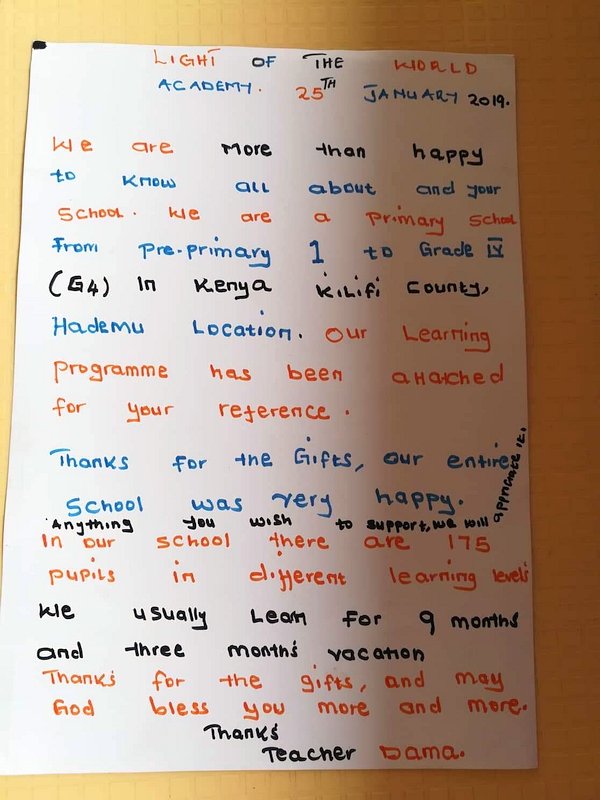 LIGHT OF THE WORLD
ACADEMY. 25TH JANUARY 2019.
We are More than happy
to know all about and your
School. We are a Primary School
From Pre-primary 1 to Grade IV
(G4) In Kenya Kilifi County,
Hademu Location. Our Learning
programme has been attatched
for your reference.
Thanks for the Gifts, our entire
School was very happy.
Anything you wish to support, we will appreciate it.
In our school there are 175
pupils in different learning levels
We usually Learn for 9 months
and three months vacation
Thanks for the gifts, and may
God bless you more and more.
Thanks
Teacher Dama.